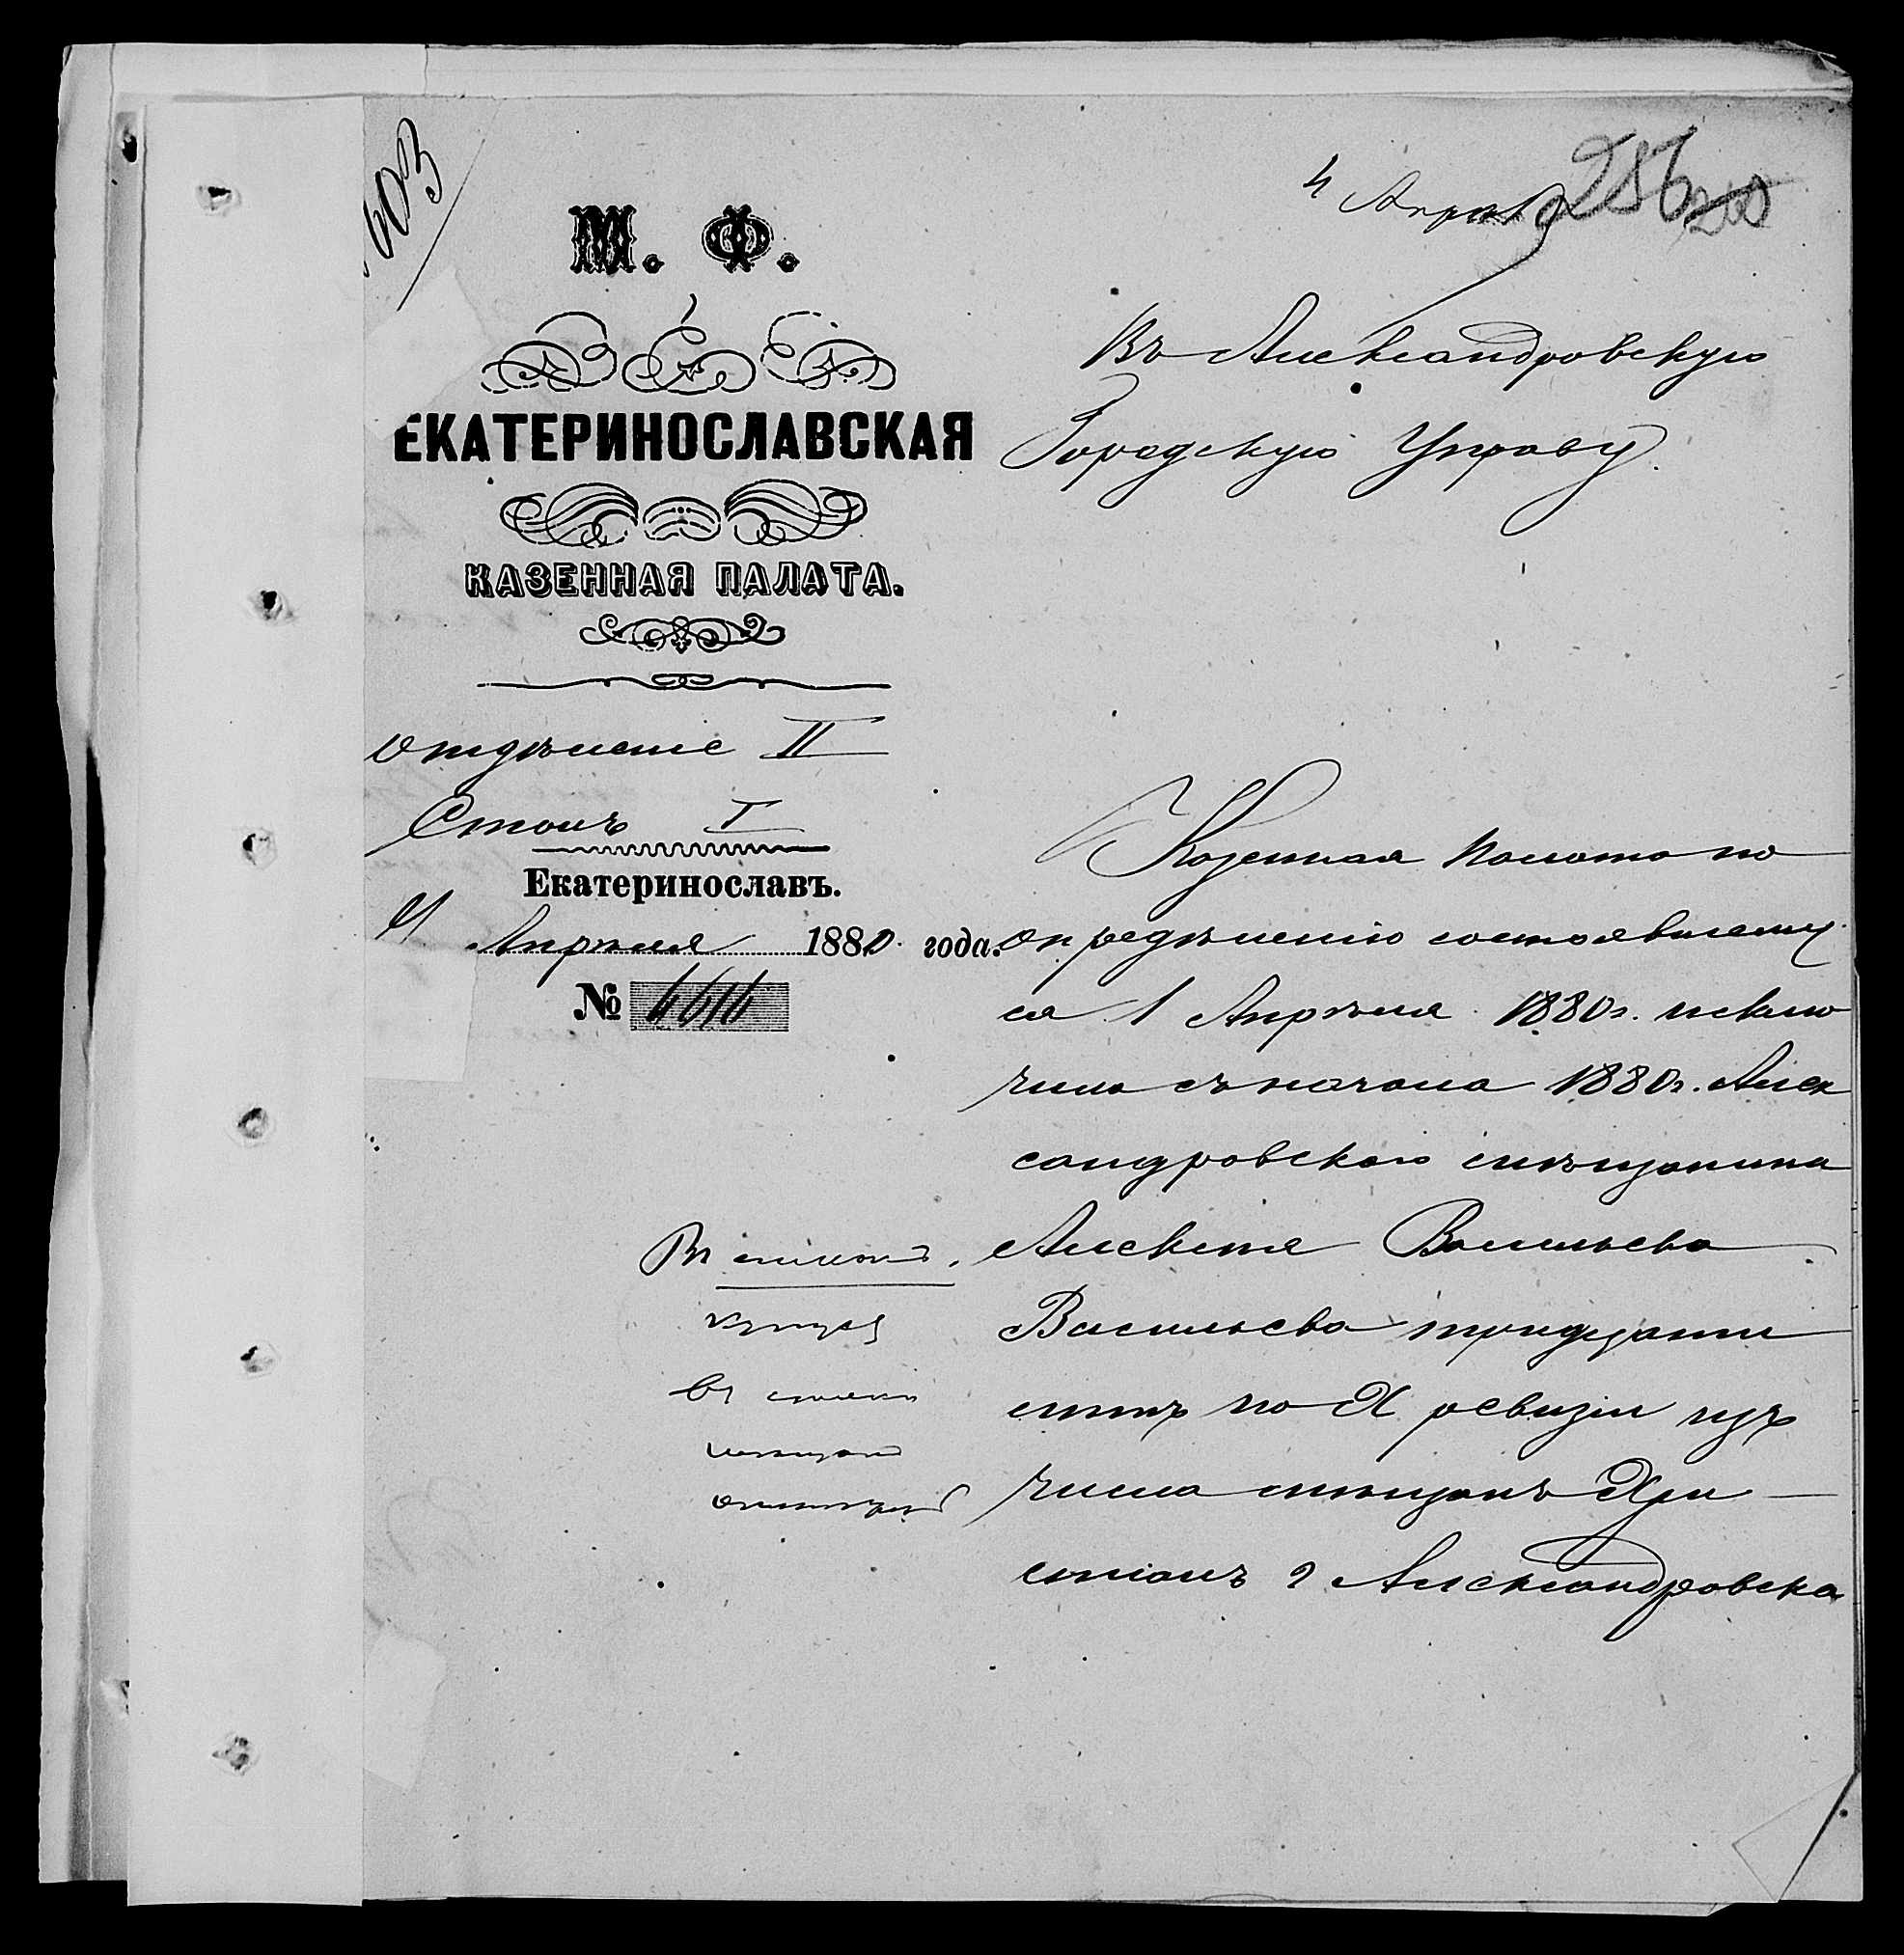 603
4 Апрѣля
286
М. Ф.
ЕКАТЕРИНОСЛАВСКАЯ
КАЗЕННАЯ ПАЛАТА.
отдѣленіе II
Столъ I
Екатеринославъ.
4 Апрѣля 1880 года.
№ 4614
Въ Александровскую
Городскую Управу.
Казенная Палата по
опредѣленію состоявшему
ся 1 Апрѣля 1880 г. исклю
чила съ начала 1880 г. Алек
сандровскаго мѣщанина
Алексѣя Васильева
Васильева тридцати
лѣтъ по X ревизіи изъ
числа мѣщанъ Хри
стіанъ г Александровска